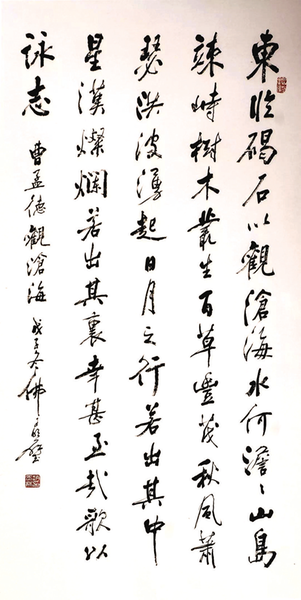 東臨碣石以觀滄海水何澹〻山島
竦峙樹木叢生百草豐茂秋風蕭
瑟洪波湧起日月之行若出其中
星漢燦爛若出其裏幸甚至哉歌以
詠志
曹孟德觀滄海 戊子冬佛